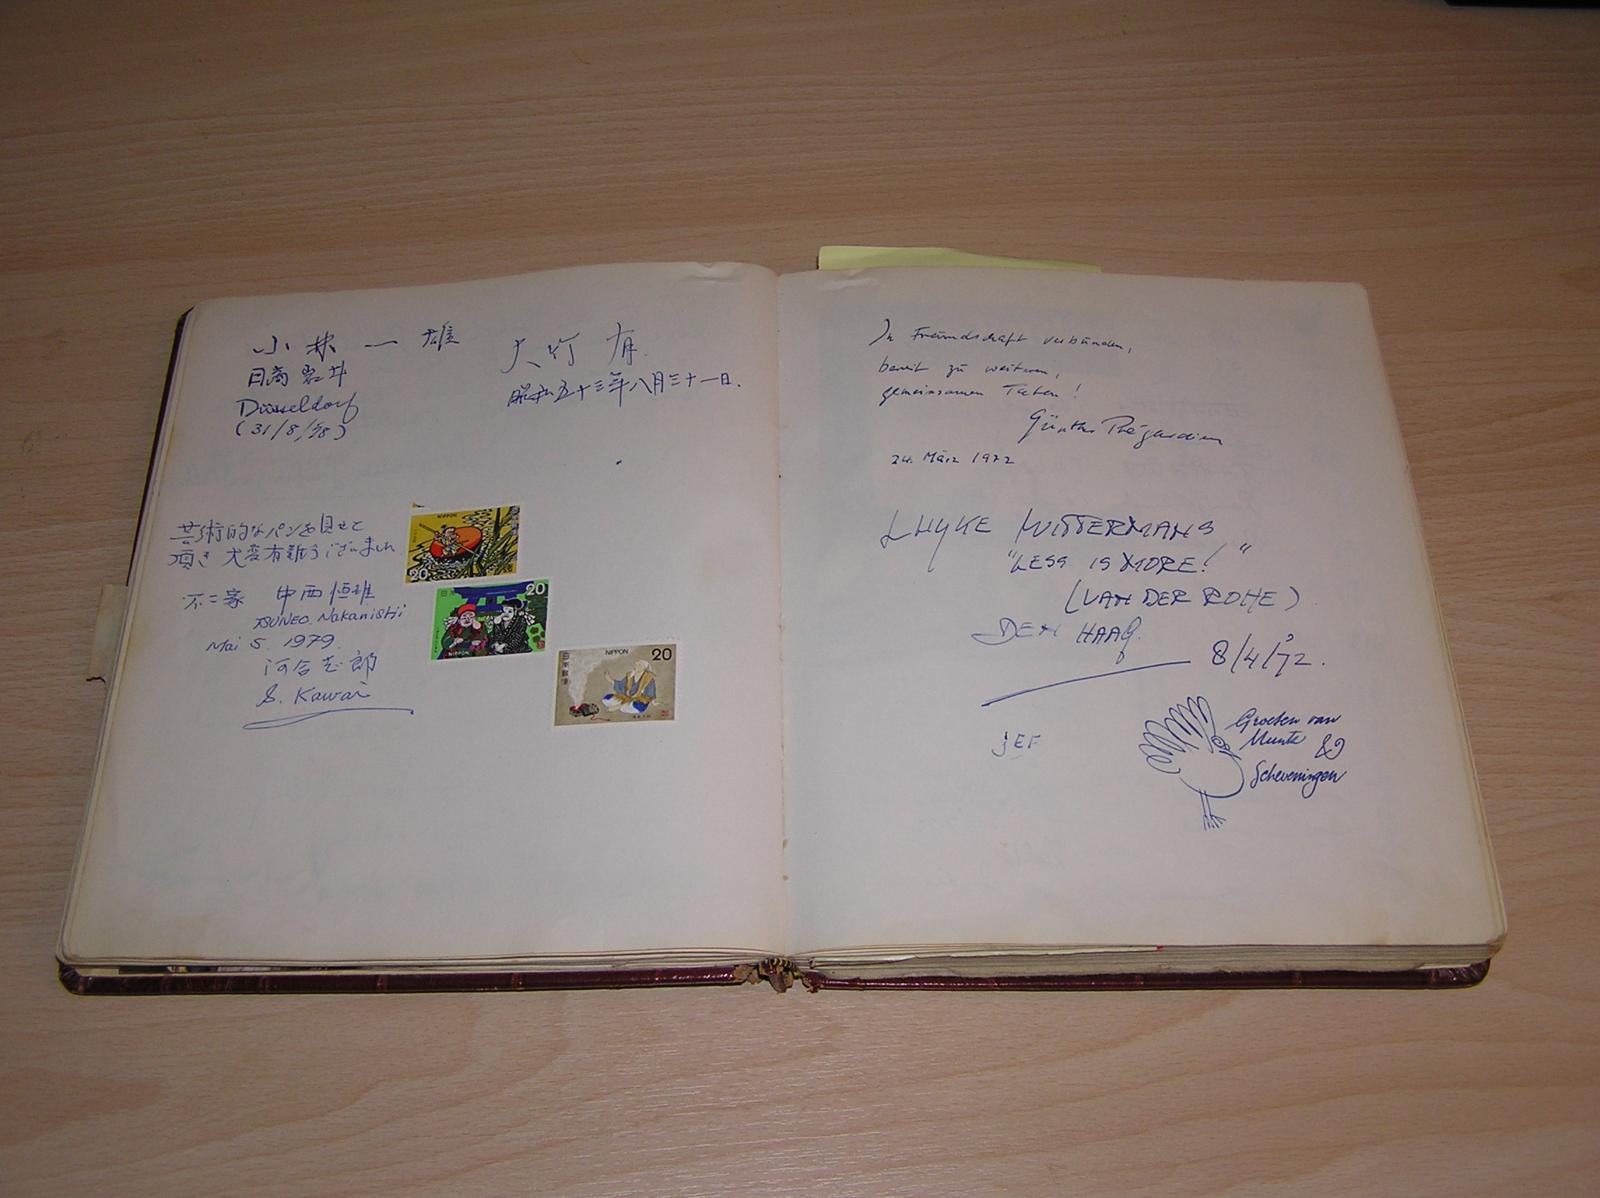 小林一雄
日商岩井
Düsseldorf
(31/8/78)
大竹 有
昭和五十三年八月三十一日.
芸術的なパンを見せて
頂き大変有難うございました
不二家 中西恒雄
TSUNEO. Nakanishi
Mai 5. 1979.
河合
S. Kawai
NIPPON
20
20
NIPPON
NIPPON 20
In Freundschaft verbunden,
bereit zu weiteren,
gemeinsamen Taten!
Günther
24. März 1972
"LESS IS MORE!"
(VAN DER ROHE)
DEN HAAG.
8/4/'72.
JEF
Groeten van
Scheveningen